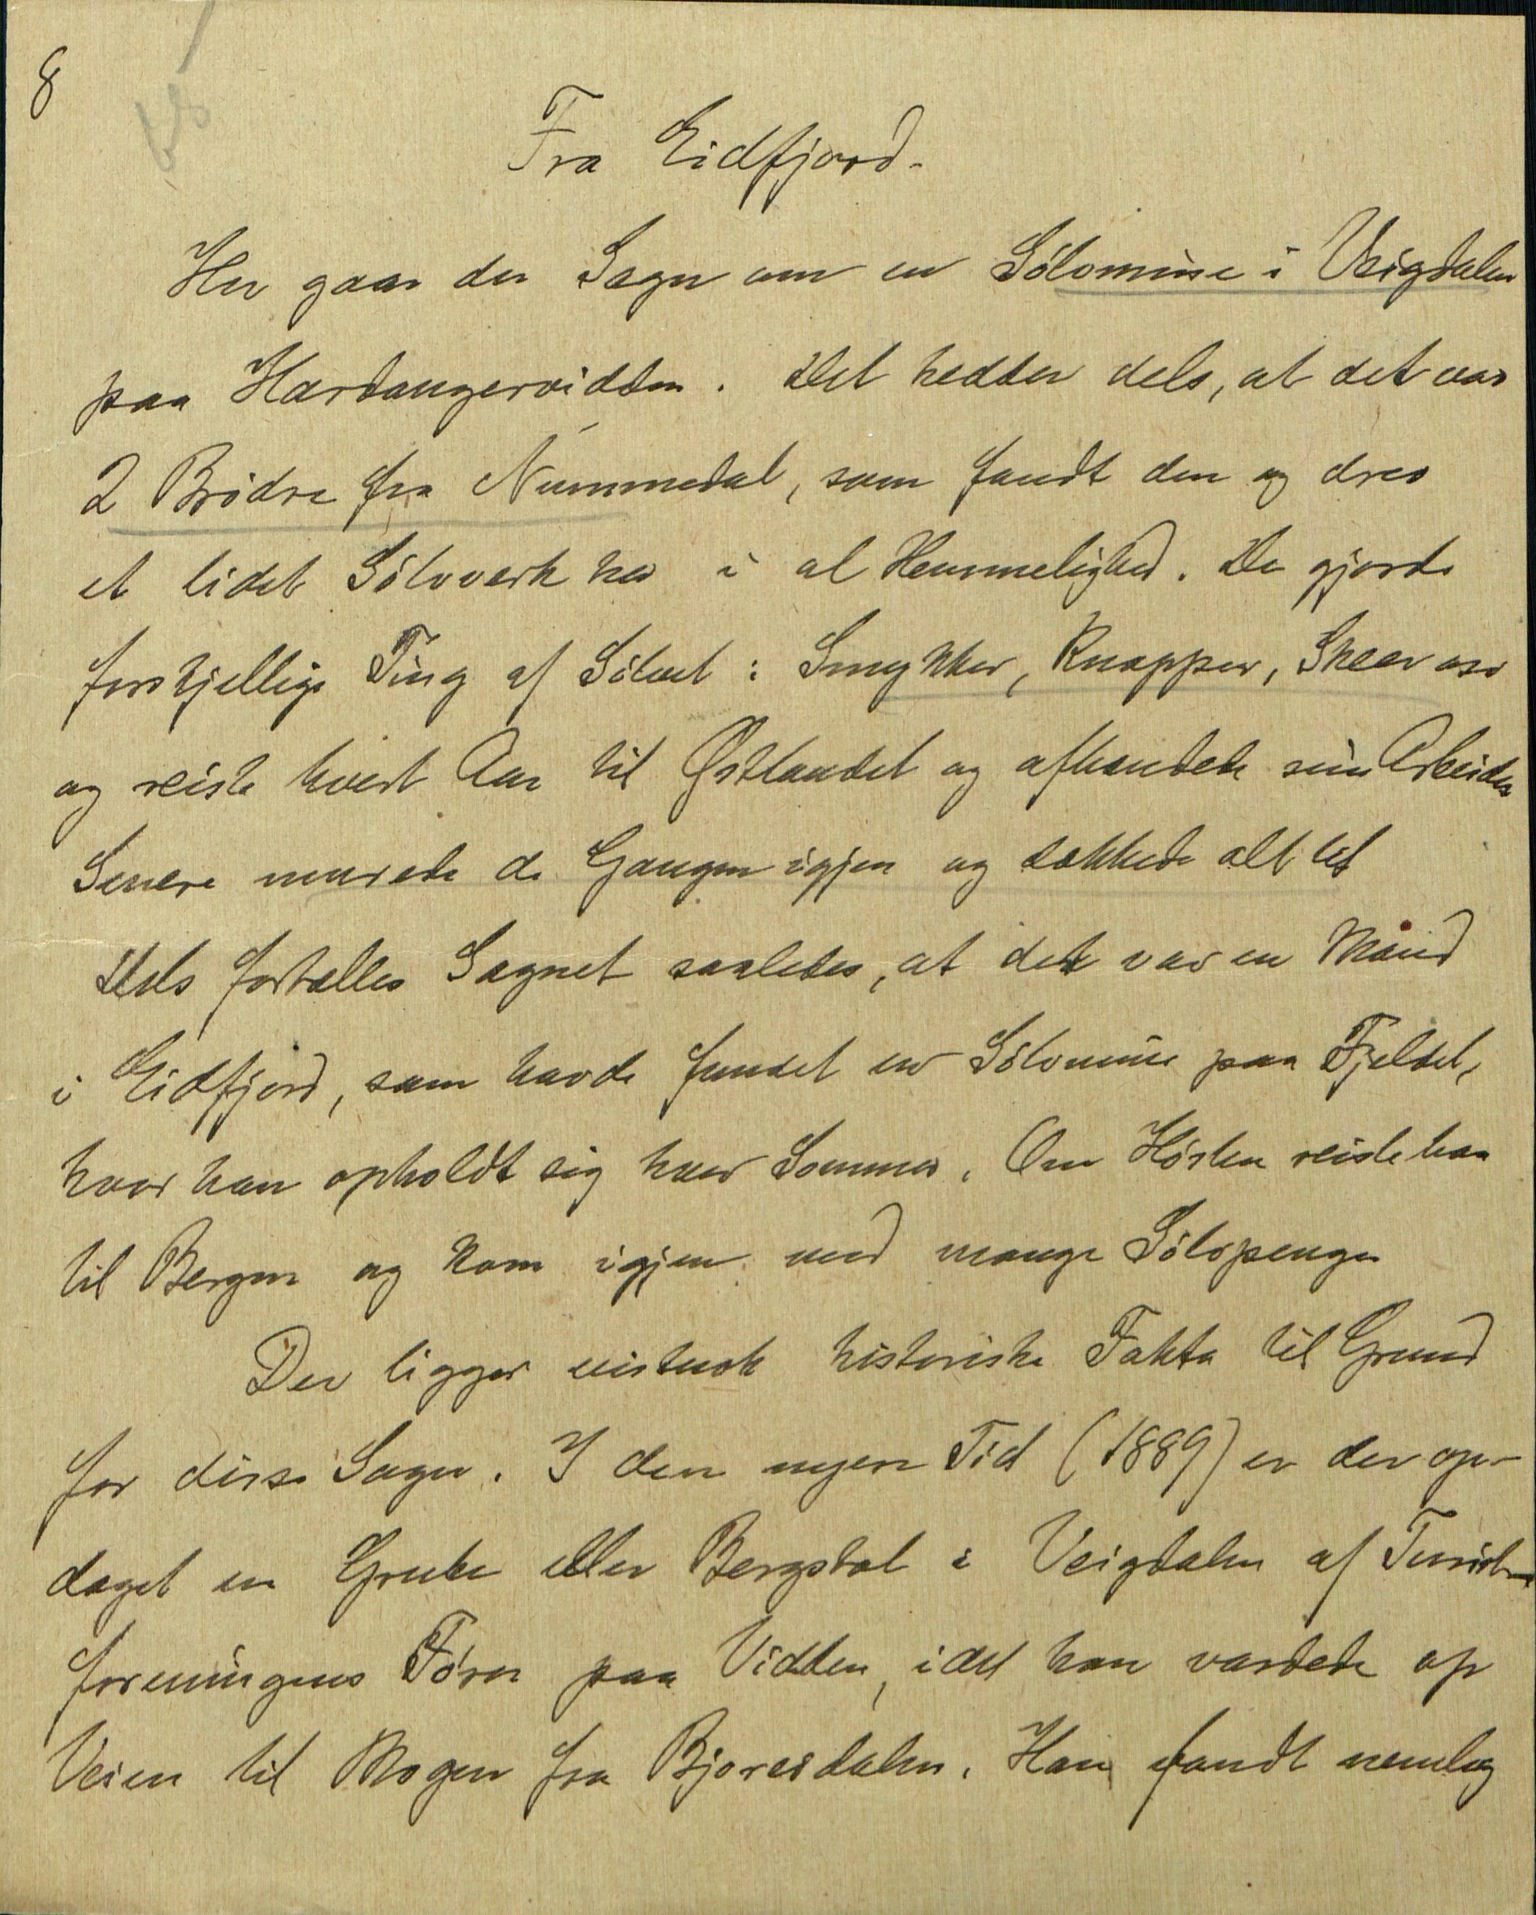 8
Fra Eidfjord.
Her gaar der Sagn om en Sølvmine i Veigdalen
paa Hardangervidden. Det hedder dels, at det var
2 Brødre fra Nummedal, som fandt den og drev
et lidet Sølvverk her i al Hemmelighed. De gjorde
forskjellige Ting af Sølvet: Smykker, Knapper, Skeer osv
og reiste hvert Aar til Østlandet og afhændede sine Arbeider
Senere murede de Gangen igjen og dækkede alt til
Dels fortælles Sagnet saaledes, at det var en Mand
i Eidfjord, som havde fundet en Sølvmine paa Fjeldet,
hvor han opholdt sig hver Sommer. Om Høsten reiste han
til Bergen og kom igjen med mange Sølvpenger
Der ligger vistnok historiske Fakta til Grund
for disse Sagn. I den nyere Tid (1889) er der op-
daget en Grube eller Bergstol i Veigdalen af Turist-
foreningens Fører paa Vidden, idet han vardede op
Veien til Mogen fra Bjoreidalen. Han fandt nemlig